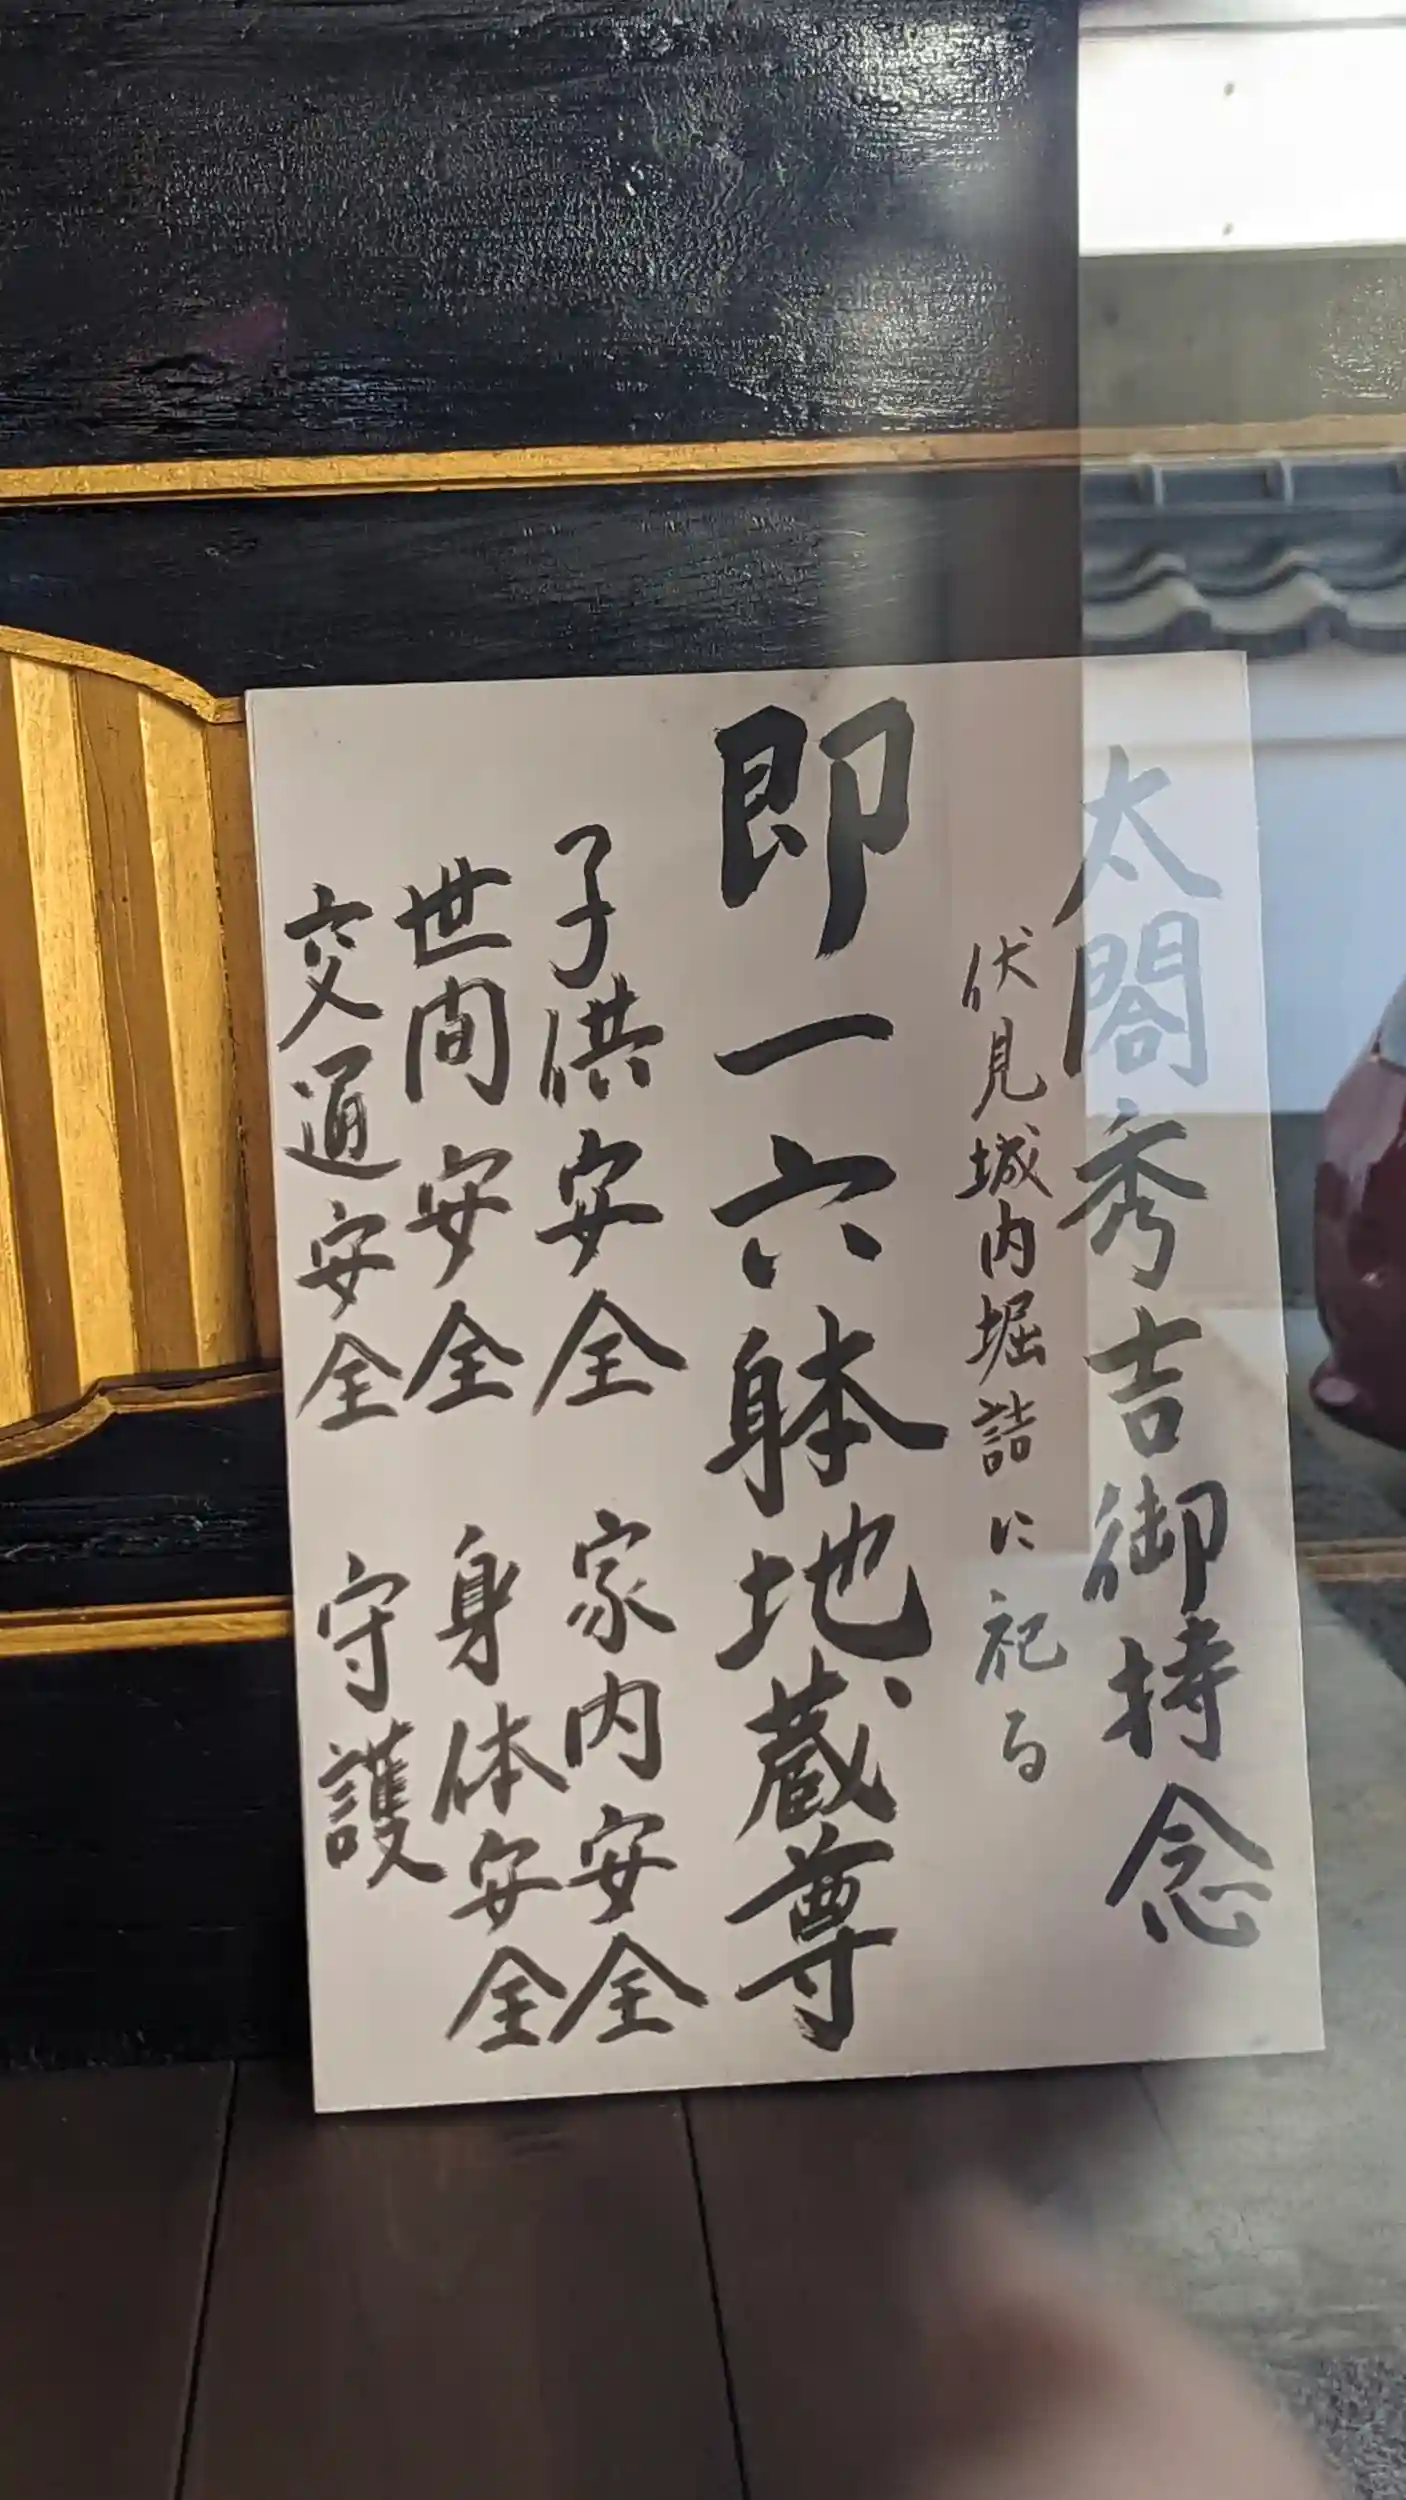 太閤秀吉御持念
伏見城内堀詰に祀る
即一六躰地蔵尊
子供安全 家内安全
世間安全 身体安全
交通安全 守護